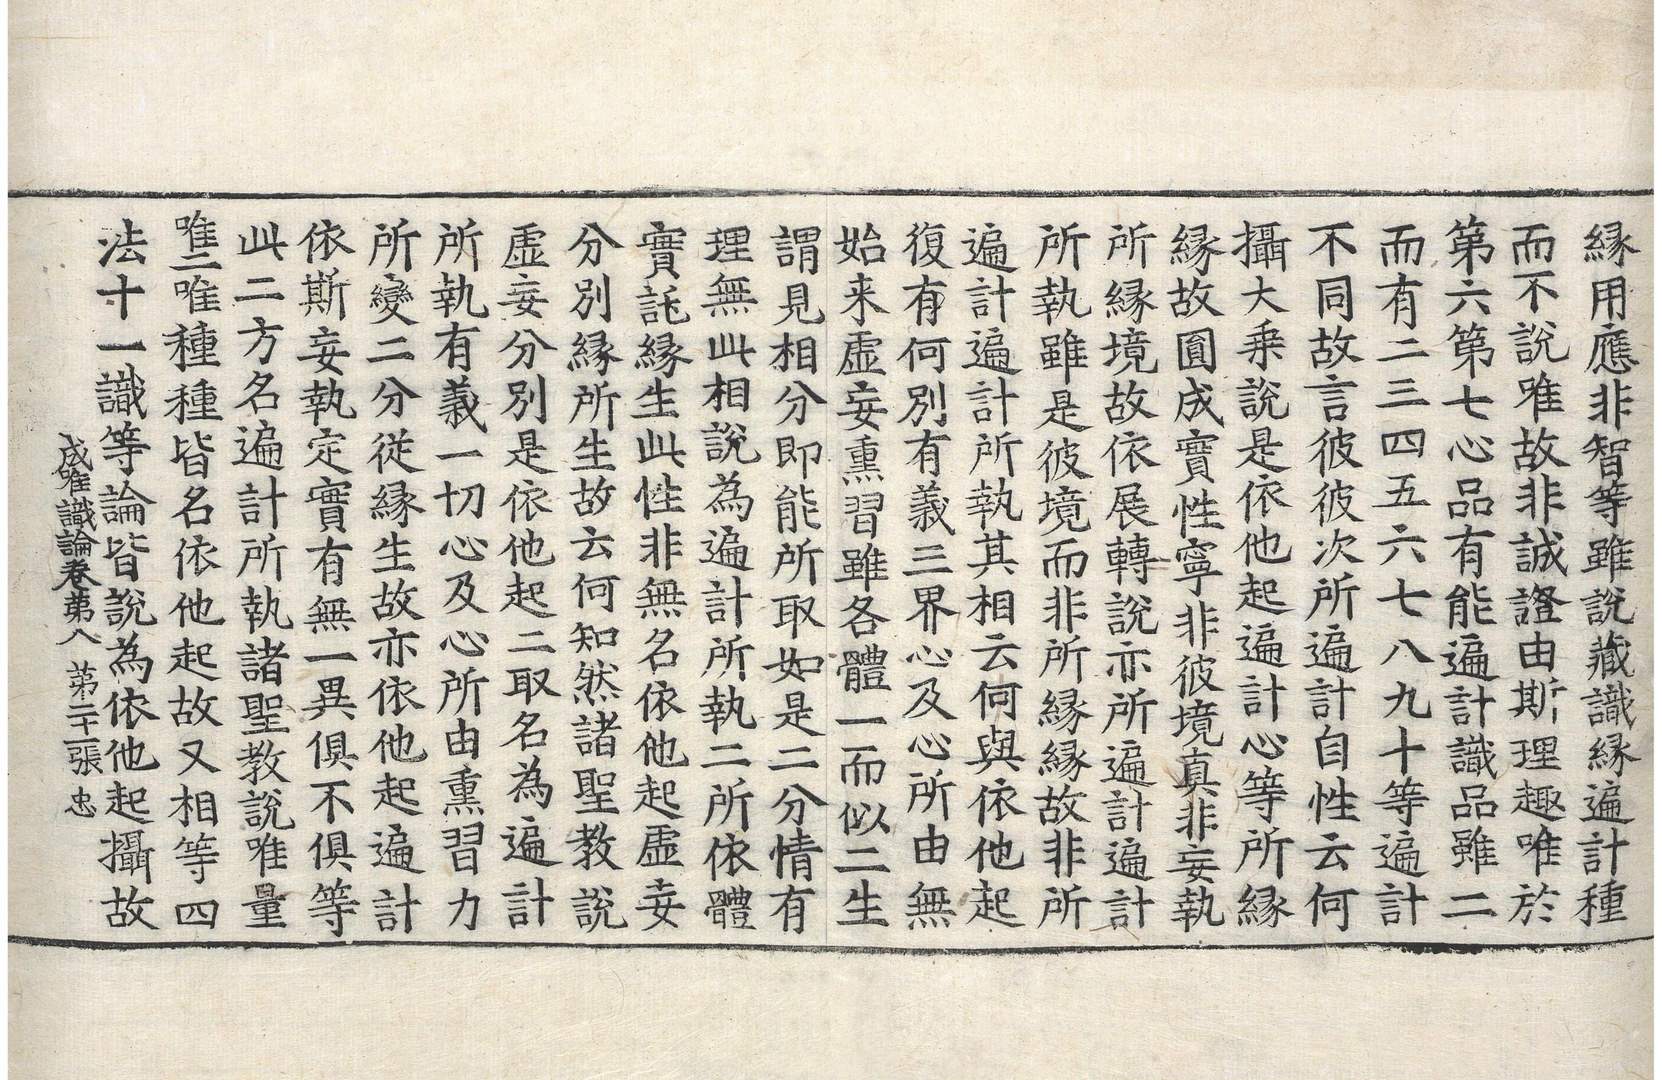 縁用應非智等雖說藏識縁遍計種
而不說唯故非誠證由斯理趣唯於
第六第七心品有能遍計識品雖二
而有二三四五六七八九十等遍計
不同故言彼彼次所遍計自性云何
攝大乗說是依他起遍計心等所縁
縁故圓成實性寧非彼境真非妄執
所縁境故依展轉說亦所遍計遍計
所執雖是彼境而非所縁縁故非所
遍計遍計所執其相云何與依他起
復有何別有義三界心及心所由無
始来虚妄熏習雖各體一而似二生
謂見相分即能所取如是二分情有
理無此相說為遍計所執二所依體
實託縁生此性非無名依他起虚妄
分別縁所生故云何知然諸聖教說
虚妄分別是依他起二取名為遍計
所執有義一切心及心所由熏習力
所變二分從縁生故亦依他起遍計
依斯妄執定實有無一異俱不俱等
此二方名遍計所執諸聖教說唯量
唯二唯種種皆名依他起故又相等四
法十一識等論皆說為依他起攝故
成唯識論卷第八 第二十一張 忠